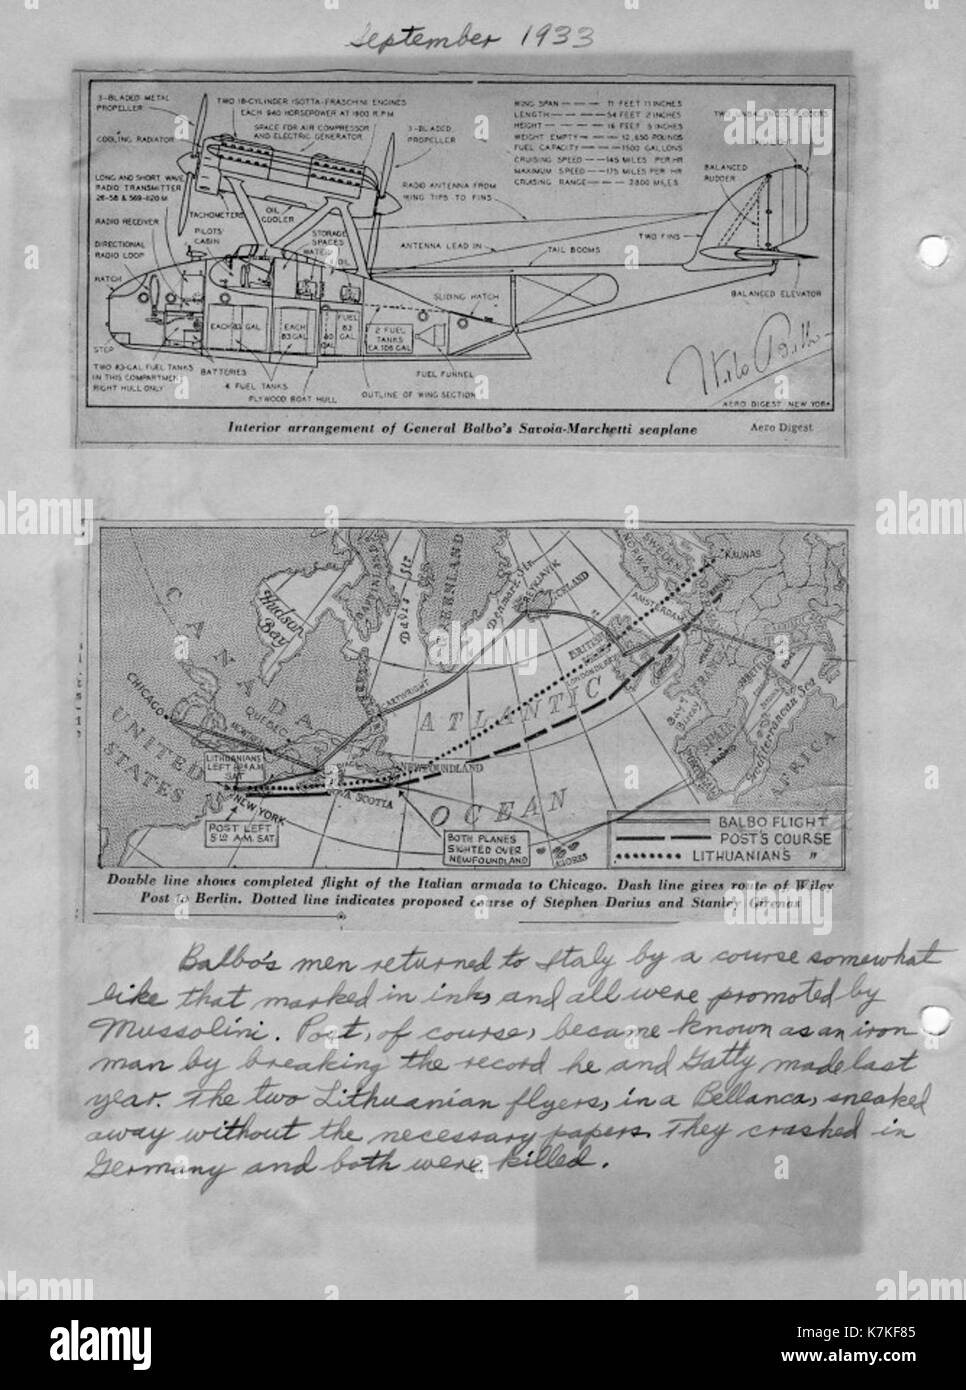 September 1933
3-BLADED METAL
PROPELLER
COOLING RADIATOR
LONG AND SHORT WAVE
RADIO TRANSMITTER
RADIO RECEIVER
DIRECTIONAL
RADIO LOOP
HATCH
STEP
TWO 83-GAL FUEL TANKS
IN THIS COMPARTMENT
RIGHT HULL ONLY
TWO 18-CYLINDER ISOTTA-FRASCHINI ENGINES
SPACE FOR AIR COMPRESSOR
AND ELECTRIC GENERATOR
3-BLADED
PROPELLER
TACHOMETERS
OIL
COOLER
PILOTS'
CABIN
STORAGE
SPACES
WATER
OIL
RADIO ANTENNA FROM
WING TIPS TO FINS
ANTENNA LEAD IN
TAIL BOOMS
TWO FINS
BALANCED
RUDDER
BALANCED ELEVATOR
SLIDING HATCH
EACH 83 GAL
EACH
83 GAL
FUEL
83
GAL
2 FUEL
TANKS
EA. 106 GAL
BATTERIES
4 FUEL TANKS
PLYWOOD BOAT HULL
FUEL FUNNEL
OUTLINE OF WING SECTION
WING SPAN — 71 FEET 11 INCHES
LENGTH — 54 FEET 2 INCHES
HEIGHT — 16 FEET 5 INCHES
WEIGHT EMPTY — 12,650 POUNDS
FUEL CAPACITY — 1500 GALLONS
CRUISING SPEED — 145 MILES PER HR
MAXIMUM SPEED — 175 MILES PER HR
CRUISING RANGE — 2800 MILES
AERO DIGEST NEW YORK
Interior arrangement of General Balbo's Savoia-Marchetti seaplane
Aero Digest
CANADA
Hudson Bay
Davis Str
GREENLAND
Denmark Str
REYKJAVIK
ICELAND
NORWAY
SWEDEN
KAUNAS
AMSTERDAM
BERLIN
LONDONDERRY
CARTWRIGHT
ATLANTIC
OCEAN
CHICAGO
QUEBEC
UNITED
STATES
LITHUANIANS
NEW YORK
POST LEFT
5:10 A.M. SAT.
NOVA SCOTIA
NEWFOUNDLAND
BOTH PLANES
SIGHTED OVER
NEWFOUNDLAND
AZORES
SPAIN
MADRID
PORTUGAL
Mediterranean Sea
AFRICA
BALBO FLIGHT
POST'S COURSE
LITHUANIANS "
Double line shows completed flight of the Italian armada to Chicago. Dash line gives route of Wiley
Post to Berlin. Dotted line indicates proposed course of Stephen Darius and Stanley Girenas
Balbo's men returned to Italy by a course somewhat
like that marked in ink, and all were promoted by
Mussolini. Post, of course, became known as an iron
man by breaking the record he and Gatty made last
year. The two Lithuanian flyers, in a Bellanca, sneaked
away without the necessary papers. They crashed in
Germany and both were killed.
alamy
K7KF85
www.alamy.com